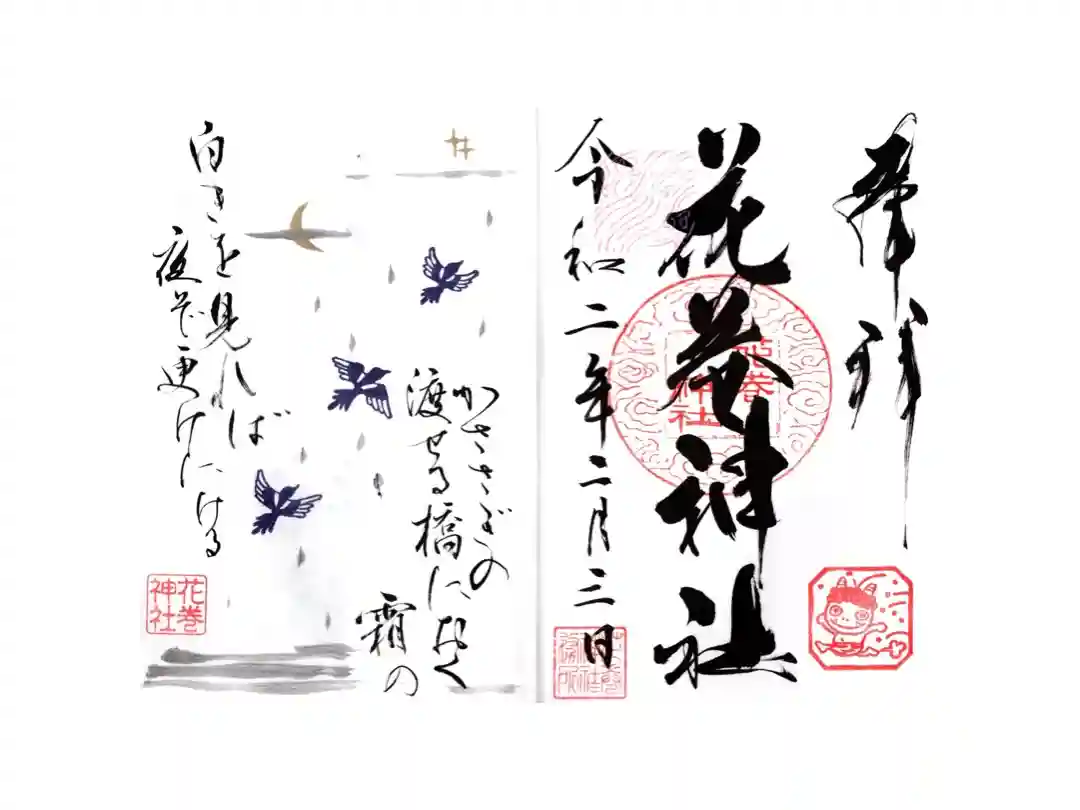 奉拝
花巻神社
花巻
神社
令和二年二月三日
かささぎの
渡せる橋におく
霜の
白きを見れば
夜ぞ更けにける
花巻
神社